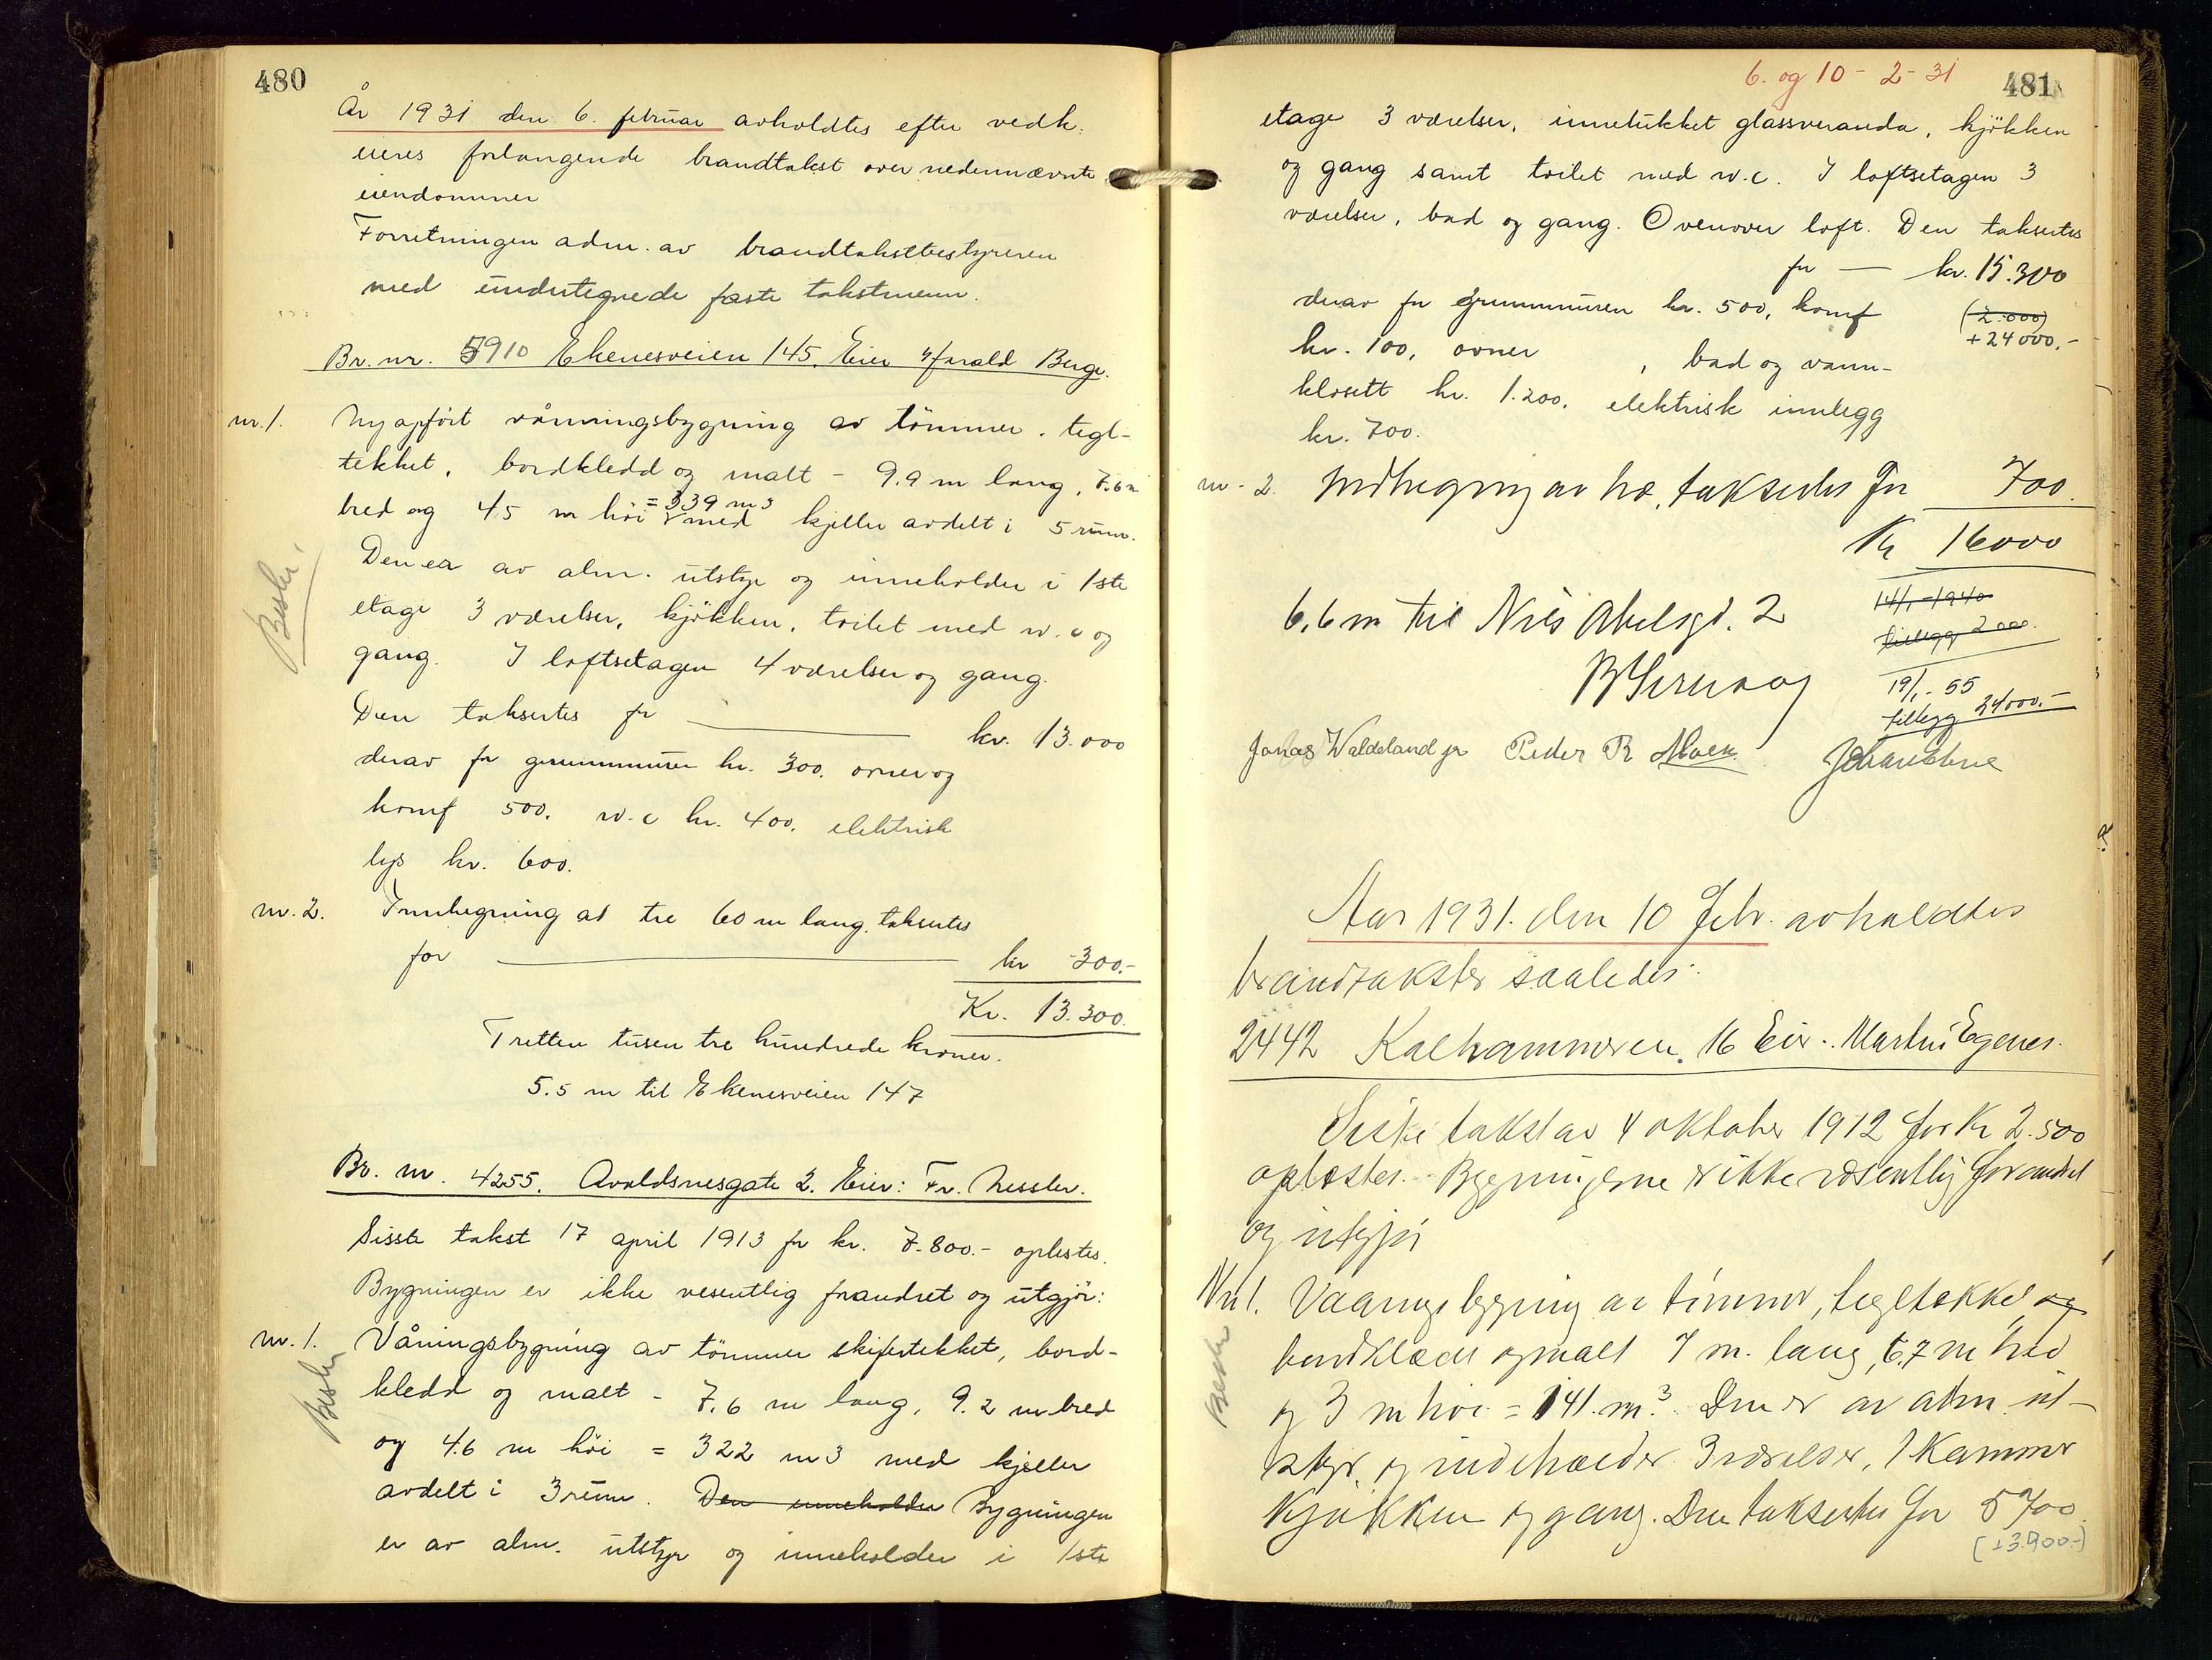 480
År 1931 den 6. februar avholdtes efter vedk.
eieres forlangende brandtakst over nedennævnte
eiendommer
Forretningen adm. av brandtakstbestyreren
med undertegnede faste takstmenn.
Br. nr. 5910 Ekenesveien 145. Eier Harald Berge.
nr. 1. Ny opfört våningsbygning av tömmer, tegl-
tekket, bordkledd og malt - 9.9 m lang, 7.6 m
bred og 4.5 m höi = 339 m3 med kjeller avdelt i 5 rum.
Den er av alm. utstyr og inneholder i 1ste
etage 3 værelser, kjökken, toilet med w.c og
gang. I loftsetagen 4 værelser og gang.
Den takseres for kr. 13.000
derav for grunnmuren kr. 300. ovner og
komf 500. w.c kr. 400. elektrisk
lys kr. 600.
nr. 2. Innhegning av tre 60 m lang. takseres
for kr 300.-
Kr. 13.300.
Tretten tusen tre hundrede kroner.
5.5 m til Ekenesveien 147
Br. nr. 4255. Avaldsnesgate 2. Eier: Fr. Nessler.
Sisste takst 17 april 1913 for kr. 7.800.- oplestes.
Bygningen er ikke vesentlig forandret og utgjör:
nr. 1. Våningsbygning av tömmer skifertekket, bord-
kledd og malt - 7.6 m lang, 9.2 m bred
og 4.6 m höi = 322 m3 med kjeller
avdelt i 3 rum. Den inneholder Bygningen
er av alm. utstyr og inneholder i 1ste
6. og 10 - 2 - 31 481
etage 3 værelser, innelukket glassveranda, kjökken
og gang samt toilet med w.c. I loftsetagen 3
værelser, bad og gang. Ovenover loft. Den takseres
for — kr. 15.300
(2.000)
derav for grunnmuren kr. 500, komf
+ 24000,-
kr. 100, ovner , bad og vann-
klosett kr. 1.200. elektrisk innlegg
kr. 700.
nr. 2. Indhegning av træ, takseres for 700.
Kr 16000
14/1 - 1940
tillegg 2000.
6,6 m til Niels Abelsgt. 2
19/1 - 55
tillegg 24000.-
Jonas Waldeland jr Peder R
Aar 1931. den 10 Febr. avholdtes
brandtakster saaledes:
2442 Kalhammeren. 16 Eier. Martin Egenes.
Siste takst av 4 oktober 1912 for Kr 2.500
oplæstes. Bygningerne er ikke væsentlig forandret
og utgjør
Nr 1. Vaaningsbygning av tømmer, tegltækket og
bordklædt og malt 7 m. lang, 6.7 m bred
og 3 m høi = 141 m3. Den er av alm. ut-
styr og indeholder 3 værelser, 1 Kammer
Kjøkken og gang. Den takseres for 5700